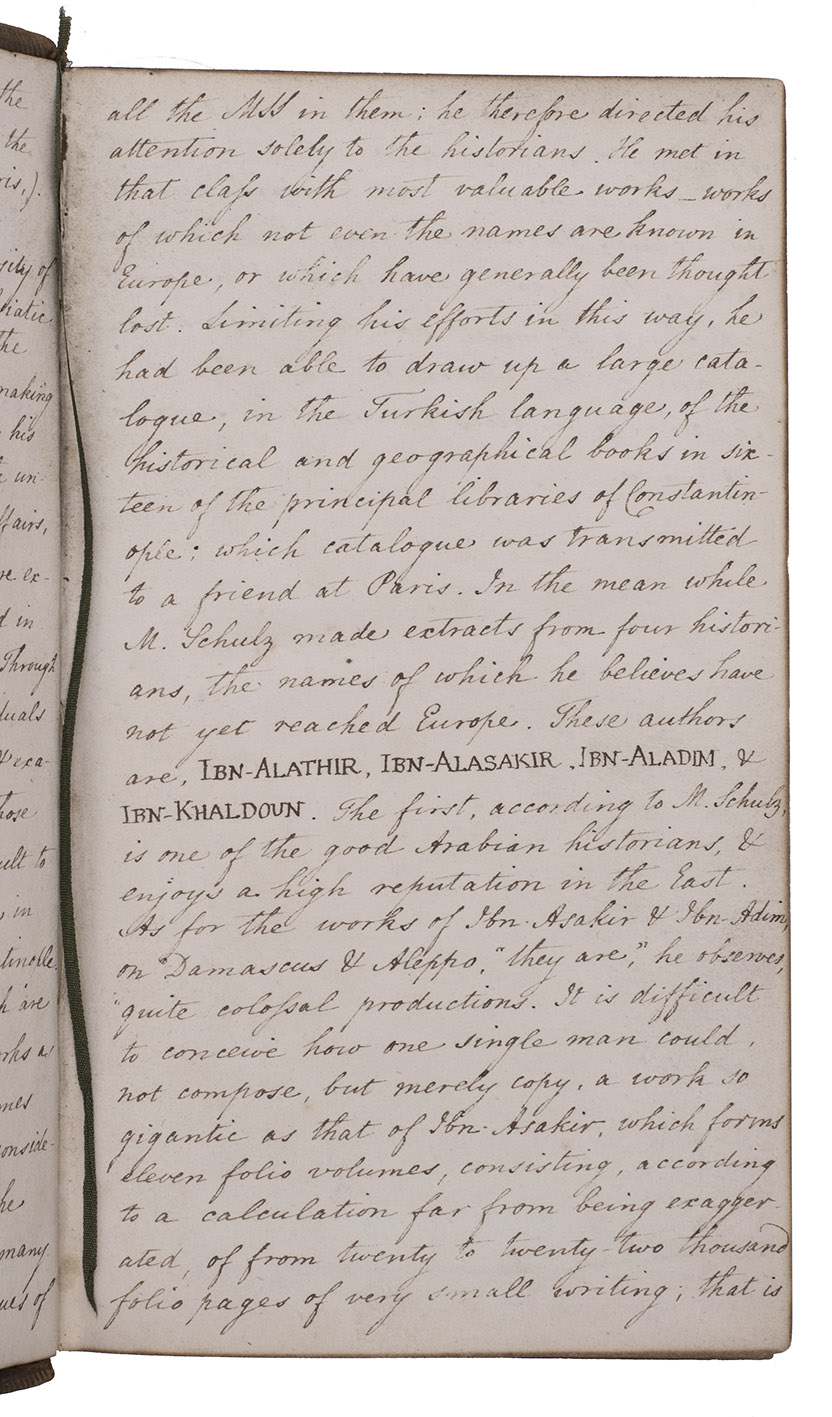 all the MSS in them; he therefore directed his
attention solely to the historians. He met in
that class with most valuable works – works
of which not even the names are known in
Europe, or which have generally been thought
lost. Limiting his efforts in this way, he
had been able to draw up a large cata-
logue, in the Turkish language, of the
historical and geographical books in six-
teen of the principal libraries of Constantin-
ople; which catalogue was transmitted
to a friend at Paris. In the mean while
M. Schulz made extracts from four histori-
ans, the names of which he believes have
not yet reached Europe. These authors
are, IBN-ALATHIR, IBN-ALASAKIR, IBN-ALADIM, &
IBN-KHALDOUN. The first, according to M. Schulz,
is one of the good Arabian historians, &
enjoys a high reputation in the East.
As for the works of Ibn-Asakir & Ibn-Adim,
on Damascus & Aleppo, "they are", he observes,
"quite colossal productions. It is difficult
to conceive how one single man could,
not compose, but merely copy, a work so
gigantic as that of Ibn-Asakir, which forms
eleven folio volumes, consisting, according
to a calculation far from being exagger-
ated, of from twenty to twenty-two thousand
folio pages of very small writing; that is
the
the
ris,).
sity of
siatic
the
making
his
un-
ffairs,
re ex-
d in
Through
duals
& exa-
hose
ult to
in
tinople
h are
rks as
mes
onside-
he
many
ues of